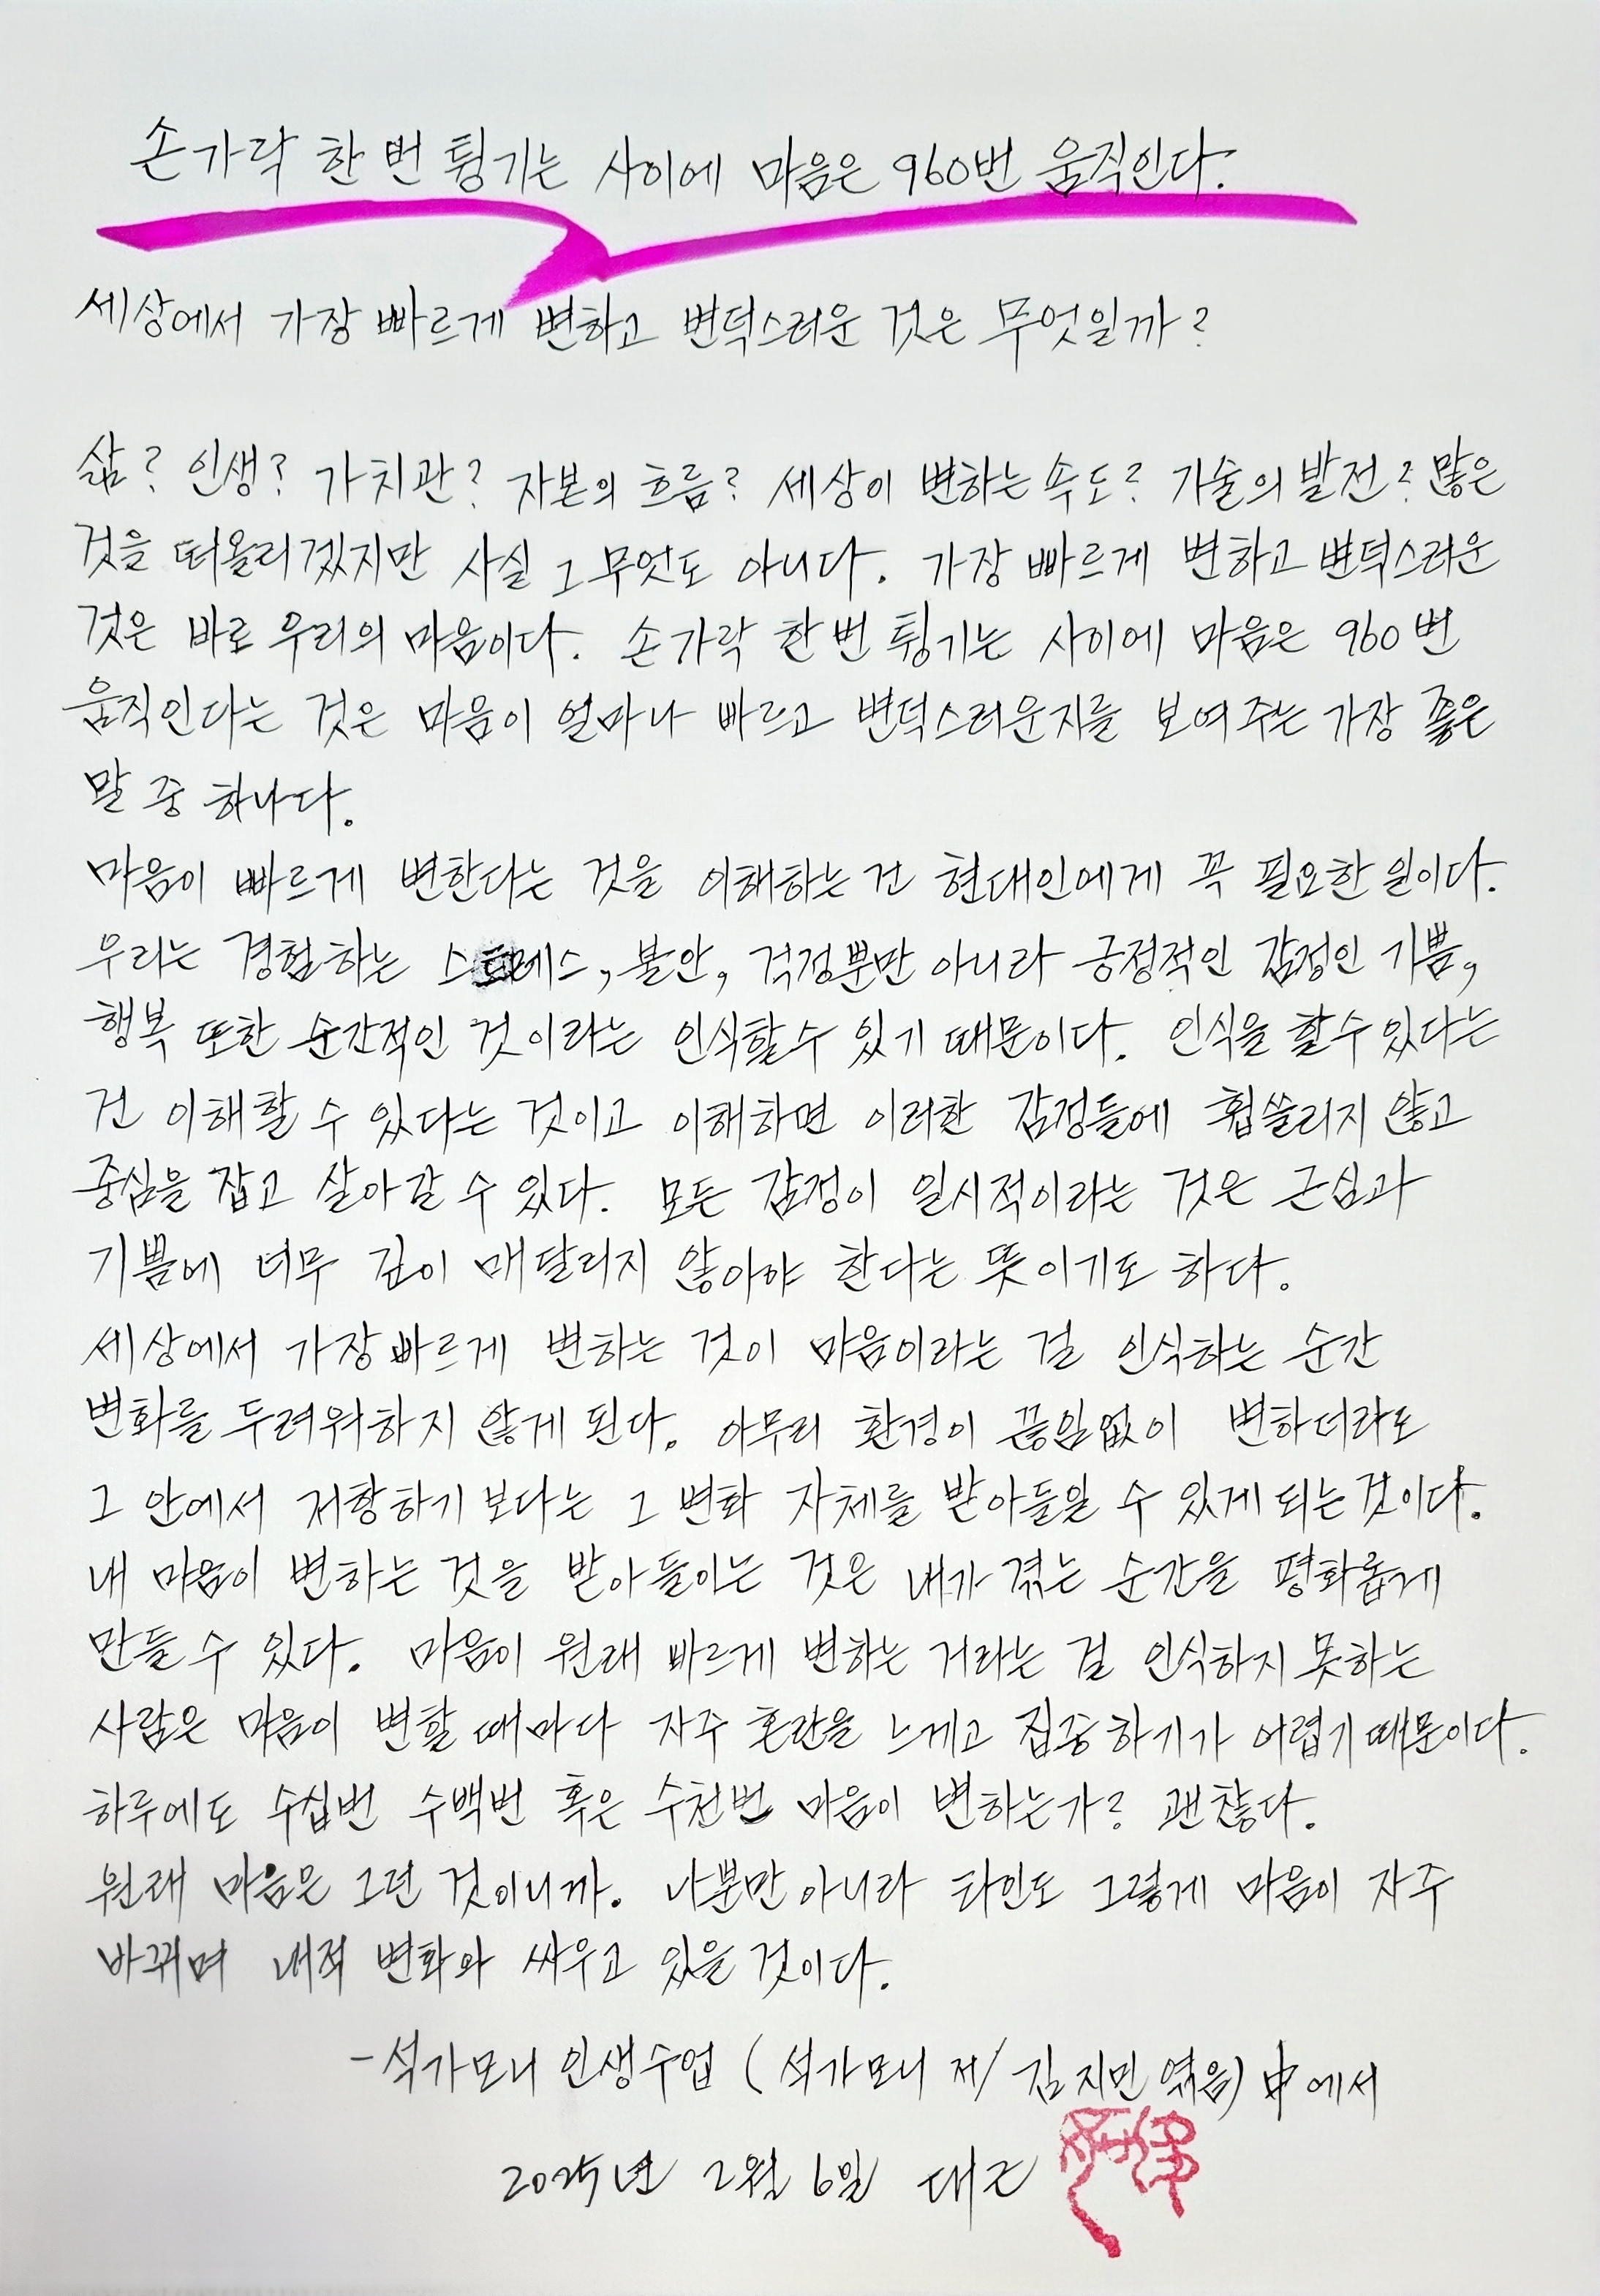 손가락 한 번 튕기는 사이에 마음은 960번 움직인다.
세상에서 가장 빠르게 변하고 변덕스러운 것은 무엇일까?
삶? 인생? 가치관? 자본의 흐름? 세상이 변하는 속도? 기술의 발전? 많은
것을 떠올리겠지만 사실 그 무엇도 아니다. 가장 빠르게 변하고 변덕스러운
것은 바로 우리의 마음이다. 손가락 한 번 튕기는 사이에 마음은 960번
움직인다는 것은 마음이 얼마나 빠르고 변덕스러운지를 보여주는 가장 좋은
말 중 하나다.
마음이 빠르게 변한다는 것을 이해하는 건 현대인에게 꼭 필요한 일이다.
우리는 경험하는 스트레스, 불안, 걱정뿐만 아니라 긍정적인 감정인 기쁨,
행복 또한 순간적인 것이라는 인식할 수 있기 때문이다. 인식을 할 수 있다는
건 이해할 수 있다는 것이고 이해하면 이러한 감정들에 휩쓸리지 않고
중심을 잡고 살아갈 수 있다. 모든 감정이 일시적이라는 것은 근심과
기쁨에 너무 깊이 매달리지 않아야 한다는 뜻이기도 하다.
세상에서 가장 빠르게 변하는 것이 마음이라는 걸 인식하는 순간
변화를 두려워하지 않게 된다. 아무리 환경이 끊임없이 변하더라도
그 안에서 저항하기 보다는 그 변화 자체를 받아들일 수 있게 되는 것이다.
내 마음이 변하는 것을 받아들이는 것은 내가 겪는 순간을 평화롭게
만들 수 있다. 마음이 원래 빠르게 변하는 거라는 걸 인식하지 못하는
사람은 마음이 변할 때마다 자주 혼란을 느끼고 집중하기가 어렵기 때문이다.
하루에도 수십번 수백번 혹은 수천번 마음이 변하는가? 괜찮다.
원래 마음은 그런 것이니까. 나뿐만 아니라 타인도 그렇게 마음이 자주
바뀌며 내적 변화와 싸우고 있을 것이다.
-석가모니 인생수업 (석가모니 저/ 김지민 엮음) 中에서
2025년 2월 6일 대근